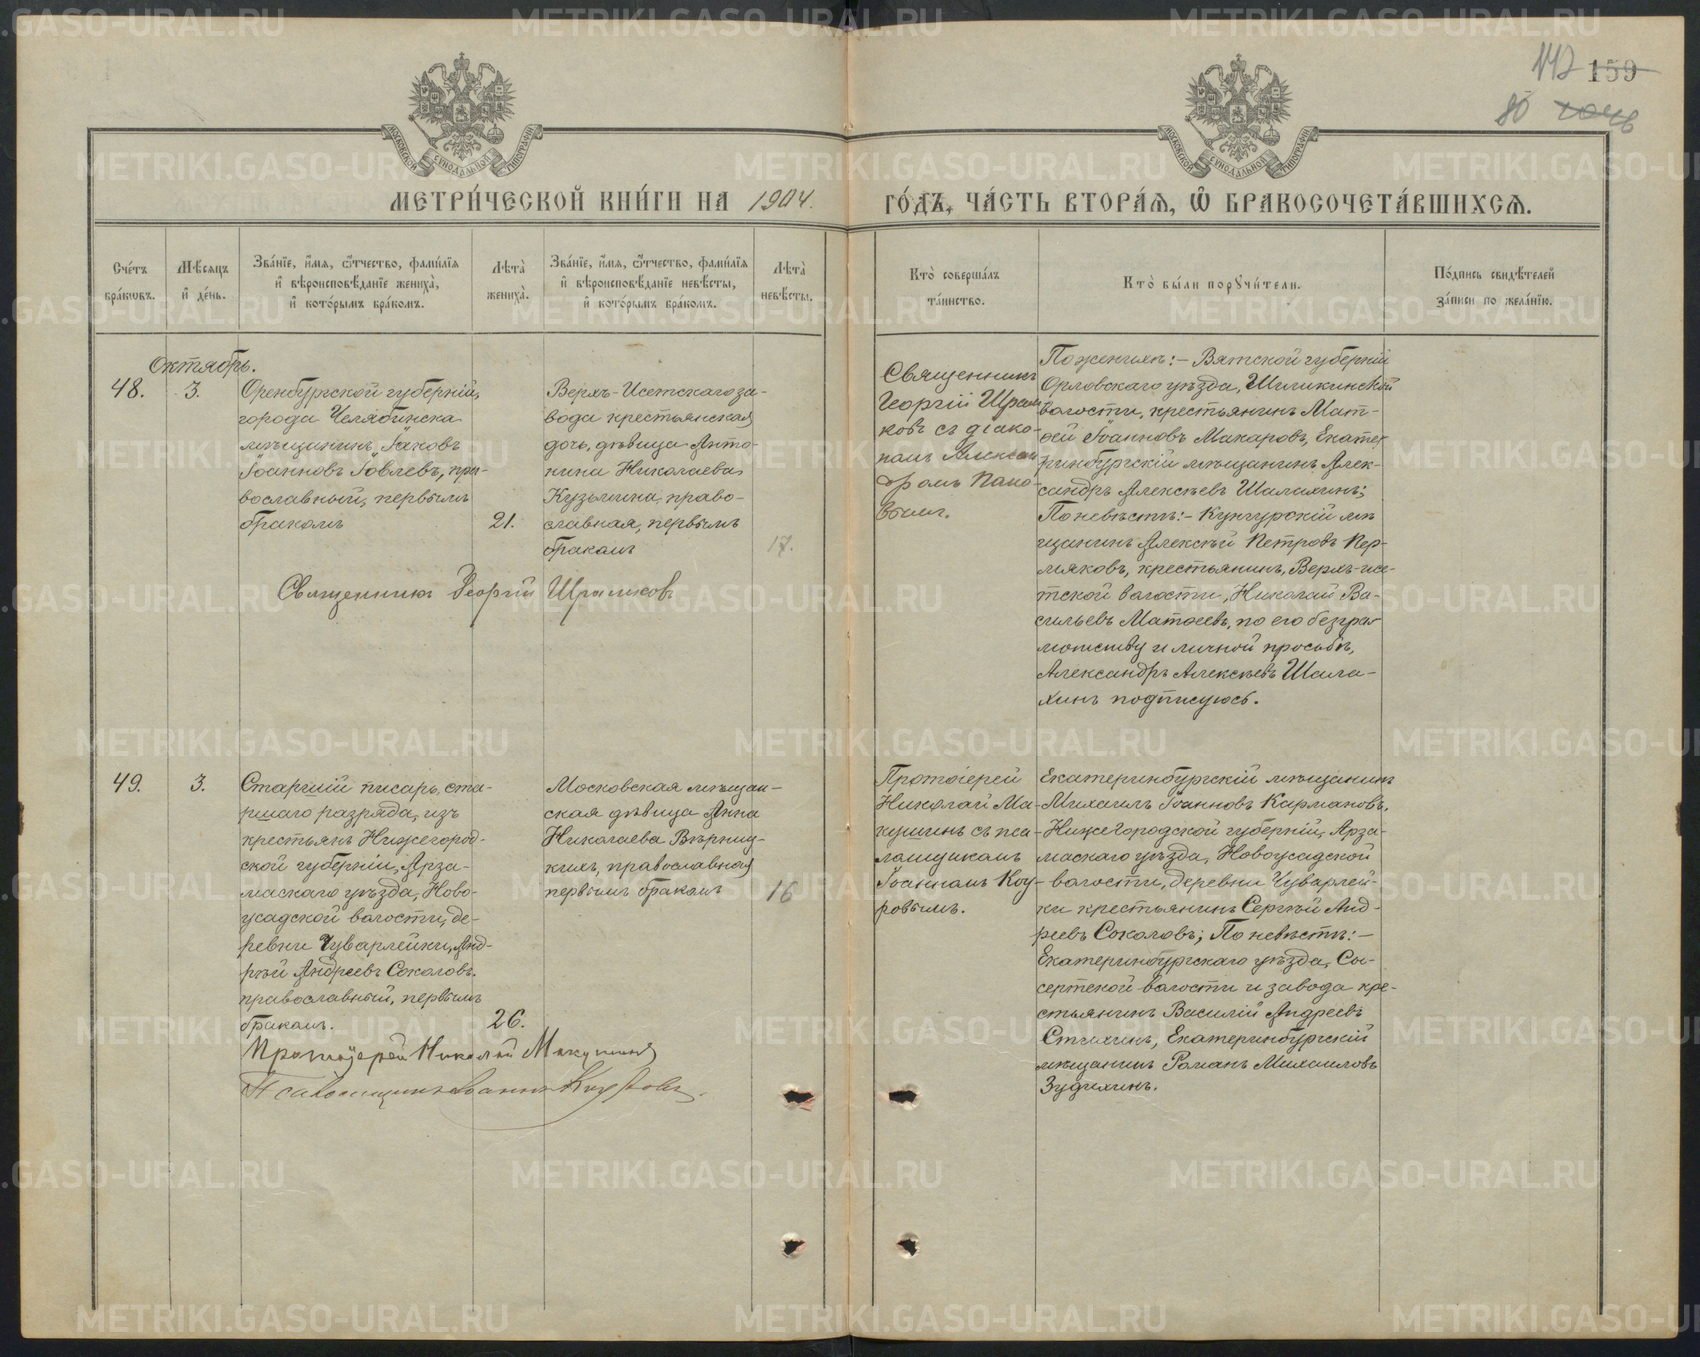 142 159
80
МОСКОВСКОЙ СѴНОДАЛЬНОЙ ТИПОГРАФІИ
МОСКОВСКОЙ СѴНОДАЛЬНОЙ ТИПОГРАФІИ
МЕТРИ́ЧЕСКОЙ КНИ́ГИ НА 1904. ГО́ДЪ, ЧА́СТЬ ВТОРА́Я, Ѽ БРАКОСОЧЕТА́ВШИХСЯ.
Сче́тъ
бра́ковъ.
Мѣ́сяцъ
и҆ де́нь.
Зва́нїе, и҆́мя, ѻ҆́тчество, фами́лїя
и҆ вѣроисповѣ́данїе жениха̀,
и҆ кото́рымъ бра́комъ.
Лѣта̀
жениха̀.
Зва́нїе, и҆́мя, ѻ҆́тчество, фами́лїя
и҆ вѣроисповѣ́данїе невѣ́сты,
и҆ кото́рымъ бра́комъ.
Лѣта̀
невѣ́сты.
Кто̀ соверша́лъ
та́инство.
Кто̀ бы́ли порꙋчи́тели.
По́дпись свидѣ́телей
за́писи по жела́нїю.
Октябрь.
48.
3.
Оренбургской губерніи,
города Челябинска
мѣщанинъ Іаковъ
Іоанновъ Іовлевъ, пра-
вославный, первымъ
бракомъ
21.
Верхъ-Исетскаго за-
вода крестьянская
дочь, дѣвица Анто-
нина Николаева
Кузьмина, право-
славная, первымъ
бракомъ
17.
Священникъ Георгій Шрамковъ
Священникъ
Георгій Шрам-
ковъ съ діако-
номъ Алексан
дромъ Попо-
вымъ.
По женихѣ:- Вятской губерніи
Орловскаго уѣзда, Шиликинской
волости, крестьянинъ Мат-
ѳей Іоанновъ Макаровъ, Екате-
ринбургскій мѣщанинъ Алек-
сандръ Алексѣевъ Шалахинъ;
По невѣстѣ:- Кунгурскій мѣ
щанинъ Алексѣй Петровъ Пер-
мяковъ, крестьянинъ, Верхъ-исе-
тской волости, Николай Ва-
сильевъ Матѳеевъ, по его безгра-
мотству и личной просьбѣ,
Александръ Алексѣевъ Шала-
хинъ подписуюсь.
49.
3.
Старшій писарь, ста-
ршаго разряда, изъ
крестьянъ Нижегород-
ской губерніи, Арза-
маскаго уѣзда, Ново-
усадской волости, де-
ревни Чуварлейки, Анд-
рѣй Андреевъ Соколовъ.
православный, первымъ
бракомъ.
26.
Московская мѣщан-
ская дѣвица Анна
Николаева Вѣрниц-
кихъ, православная
первымъ бракомъ
16
Протоіерей Николай Макушинъ
Псаломщикъ Іоаннъ Коуровъ.
Протоіерей
Николай Ма-
кушинъ съ пса-
ломщикомъ
Іоанномъ Коу-
ровымъ.
Екатеринбургскій мѣщанинъ
Михаилъ Іоанновъ Кармановъ,
Нижегородской губерніи, Арза-
маскаго уѣзда, Новоусадской
волости, деревни Чуварлей-
ки крестьянинъ Сергѣй Анд-
реевъ Соколовъ; По невѣстѣ:-
Екатеринбургскаго уѣзда, Сы-
сертской волости и завода кре-
стьянинъ Василій Андреевъ
Стихинъ, Екатеринбургскій
мѣщанинъ Романъ Михаиловъ
Зудихинъ.
METRIKI.GASO-URAL.RU